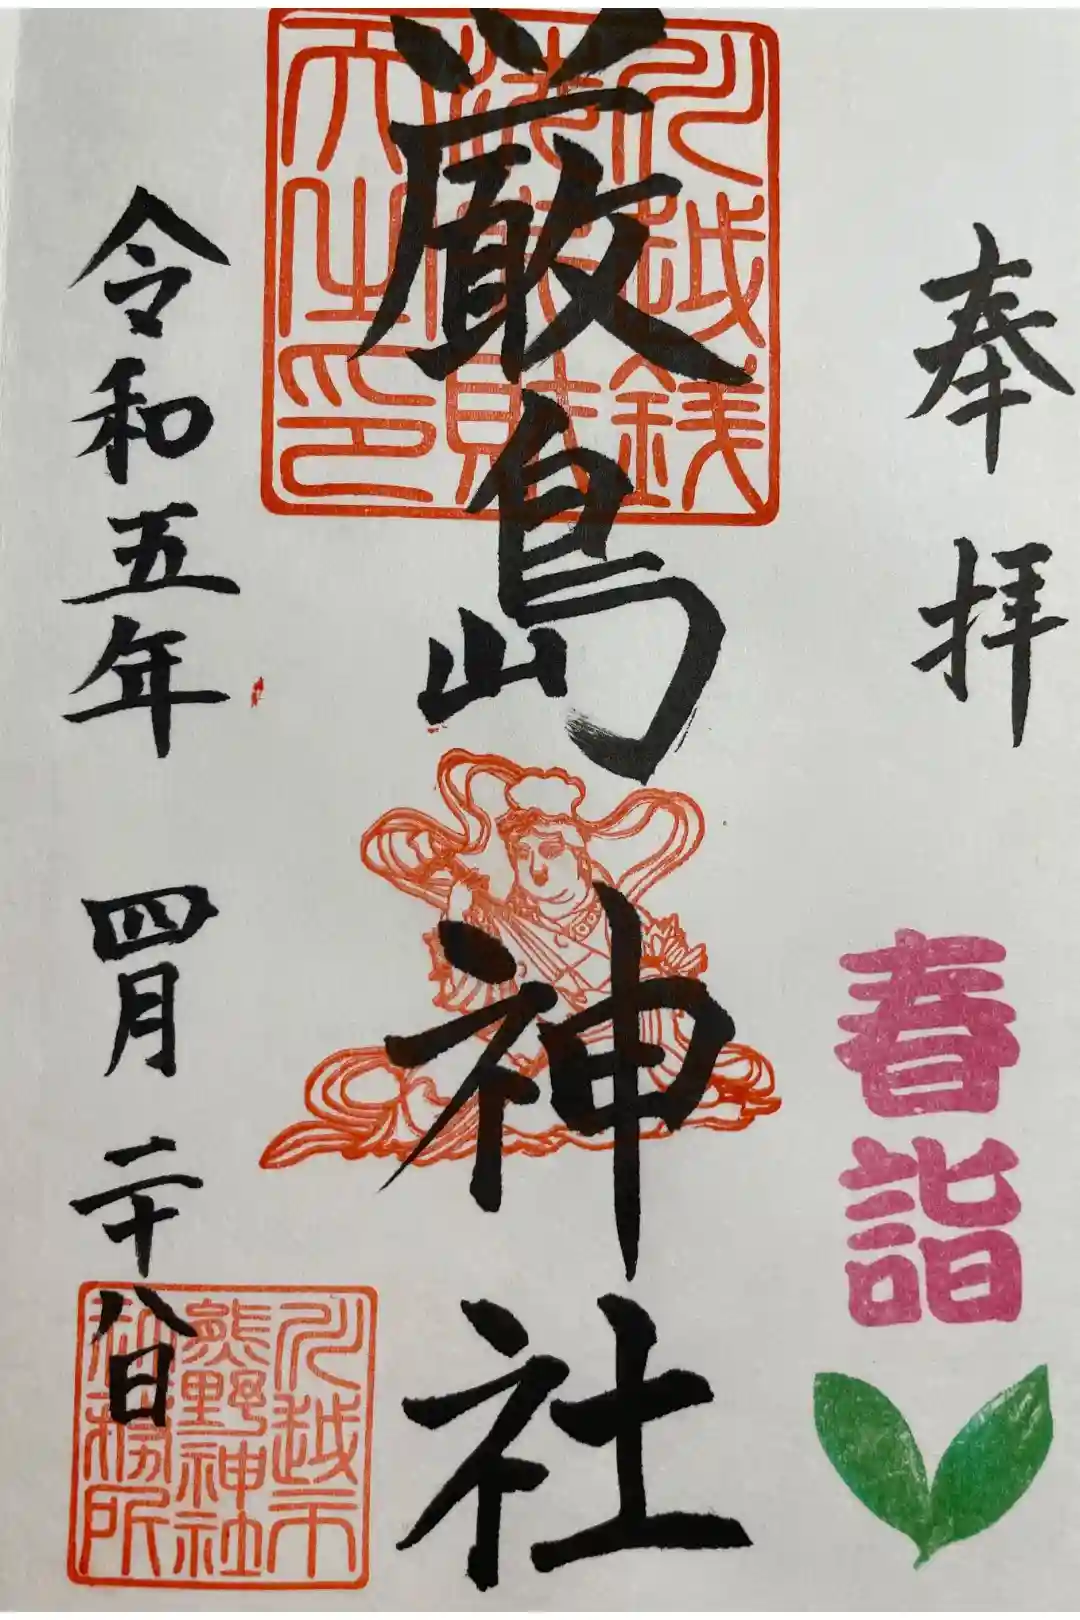 奉拝
春詣
川越銭
洗弁財
天之印
厳島神社
令和五年 四月 二十八日
川越市
熊野神社
社務所